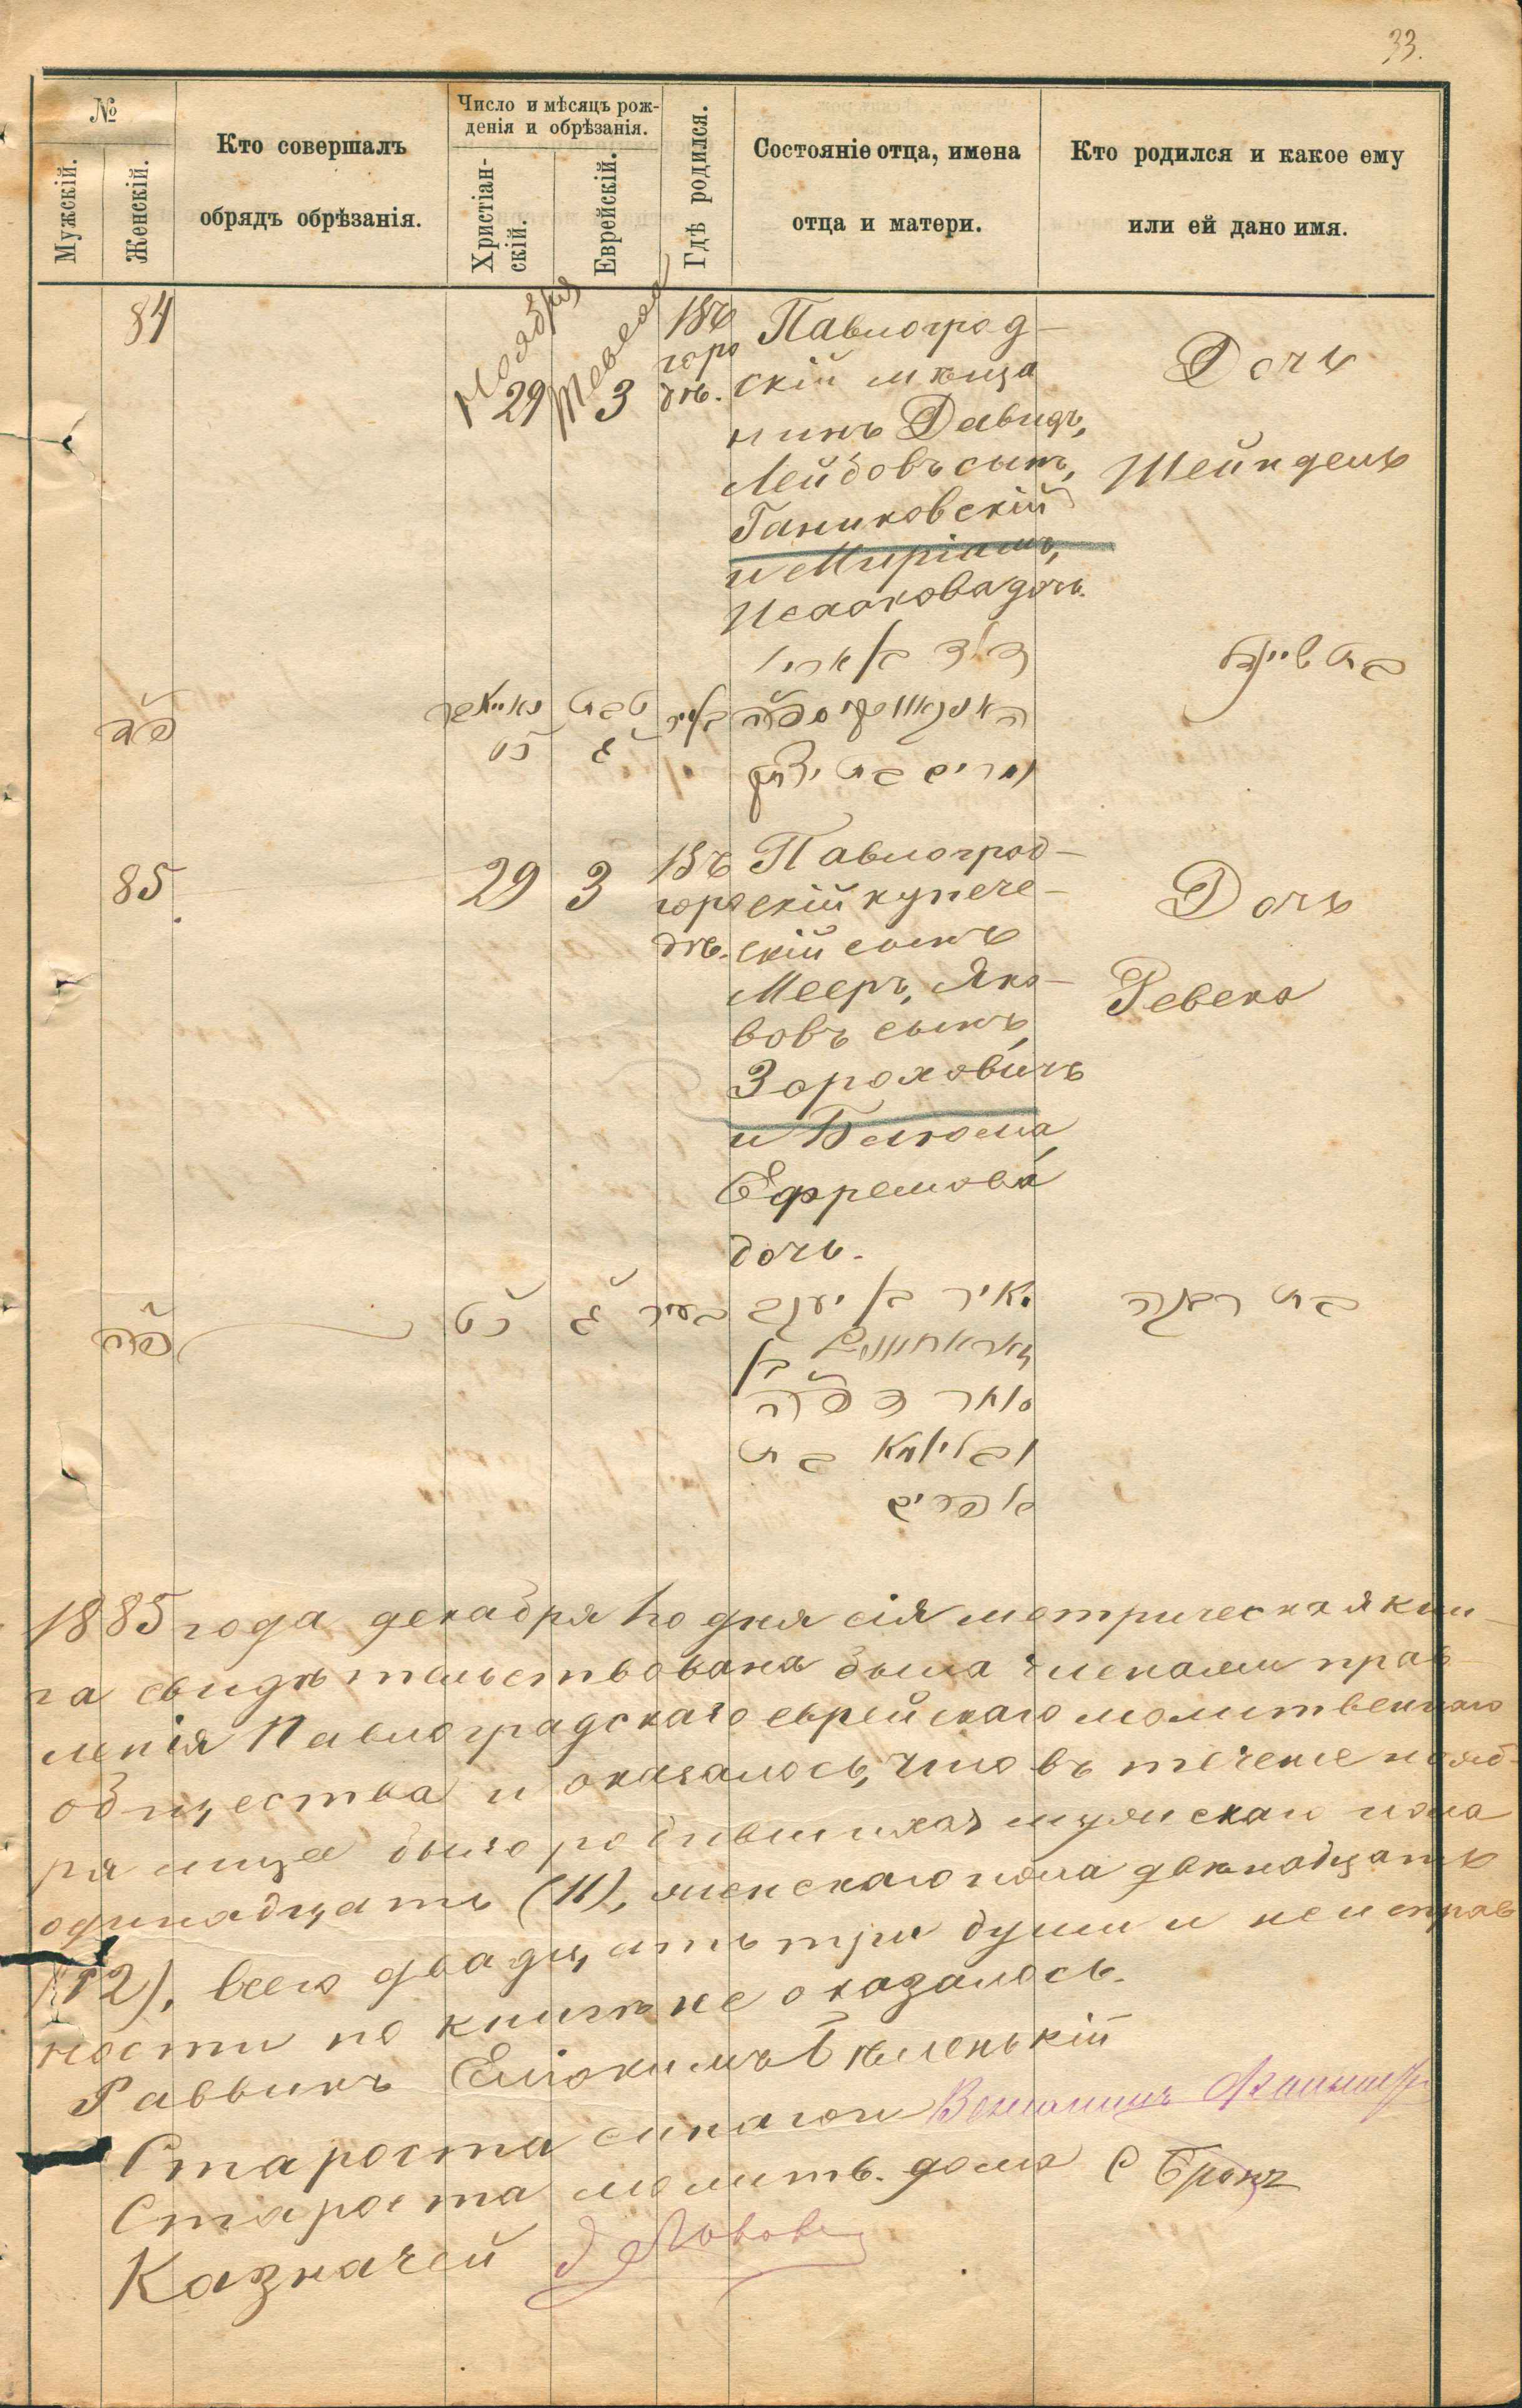 33.
№
Мужскій.
Женскій.
Кто совершалъ
обрядъ обрѣзанія.
Число и мѣсяцъ рож-
денія и обрѣзанія.
Христіан-
скій.
Еврейскій.
Гдѣ родился.
Состояніе отца, имена
отца и матери.
Кто родился и какое ему
или ей дано имя.
84
Ноября
29
3
Въ
горо
дѣ.
Павлоград-
скій мѣща
нинъ Давидъ,
Лейбовъ сынъ,
Ганиковскій
и Миріамъ,
Исаакова дочь.
Дочь
Шейндель
פד
כט
ג
דוד בן
בת
85.
29
3
Въ
горо
дѣ.
Павлоград-
скій купече-
скій сынъ
Мееръ, Яко-
вовъ сынъ,
Зороховичъ
и Блюма
Ефремова
дочь.
Дочь
Ревека
פה
כט
ג
בעיר
מאיר בן יעקב
בן
סוחר
ובלומא בת
אפרים
בת רבקה
1885 года декабря 1го дня сія метрическая кни-
га свидѣтельствована была членами прав-
ленія Павлоградскаго еврейскаго молитвеннаго
общества и оказалось, что въ течение нояб-
ря мца было родившихся мужскаго пола
одинадцать (11), женскаго пола двѣнадцать
(12), всего двадцать три души и неисправ
ности по книгѣ не оказалось.
Раввинъ Еліокимъ Бѣленькій
Староста синагоги Веніаминъ
Староста молитв. дома С Бронъ
Казначей